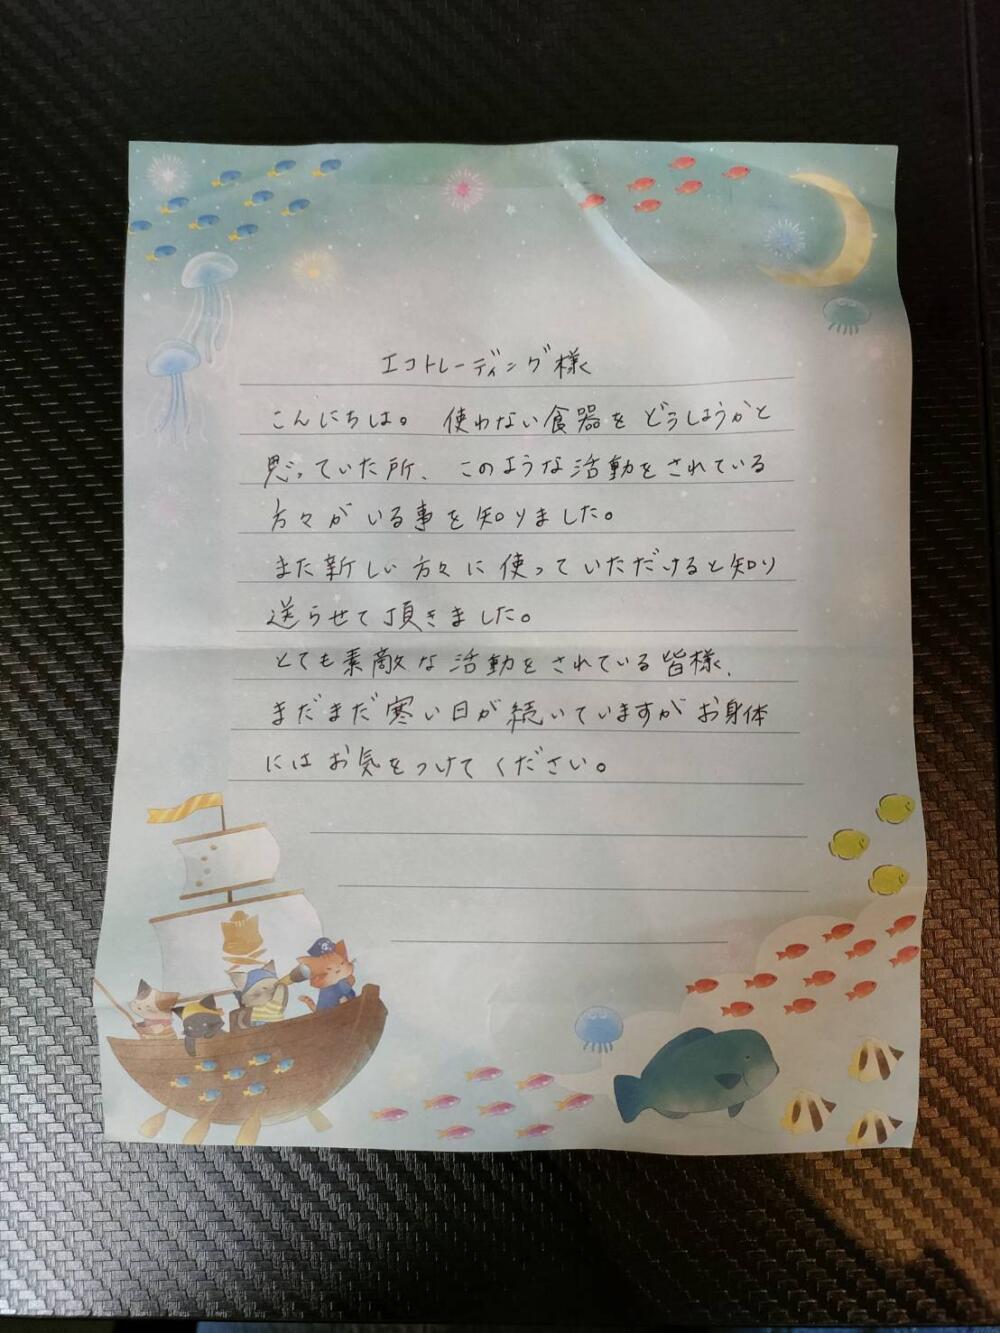 エコトレーディング様
こんにちは。 使わない食器をどうしようかと
思っていた所、このような活動をされている
方々がいる事を知りました。
また新しい方々に使っていただけると知り
送らせて頂きました。
とても素敵な活動をされている皆様、
まだまだ寒い日が続いていますがお身体
にはお気をつけてください。